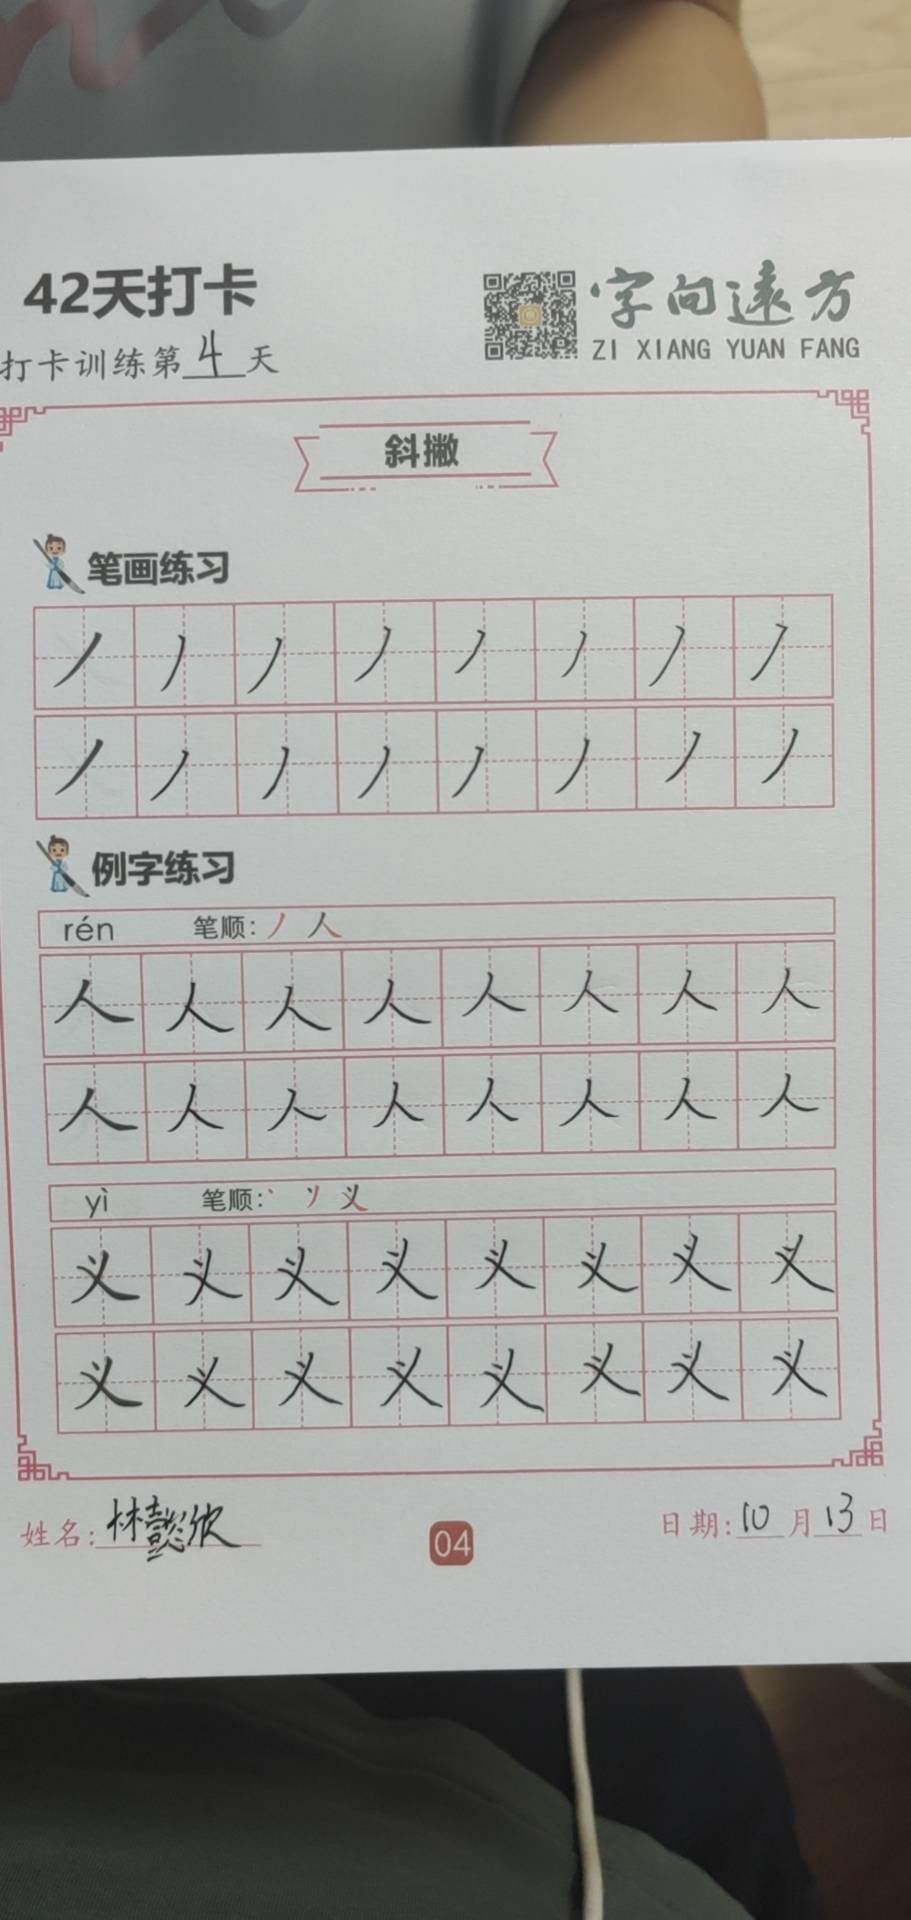 42天打卡
字向遠方
ZI XIANG YUAN FANG
打卡训练第4天
斜撇
笔画练习
丿 丿 丿 丿 丿 丿 丿 丿
丿 丿 丿 丿 丿 丿 丿 丿
例字练习
rén 笔顺: 丿 人
人 人 人 人 人 人 人 人
人 人 人 人 人 人 人 人
yì 笔顺: 丶 丷 义
义 义 义 义 义 义 义 义
义 义 义 义 义 义 义 义
姓名: 林懿欣
04
日期: 10月13日